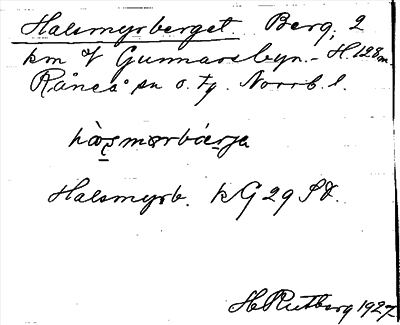 Halsmyrberget. Berg, 2
km V Gunnarsbyn. - H. 128 m.
Råneå sn o. tg. Norrb. l.
Halsmyrb. kG 29 SV.
H Rutberg 1927